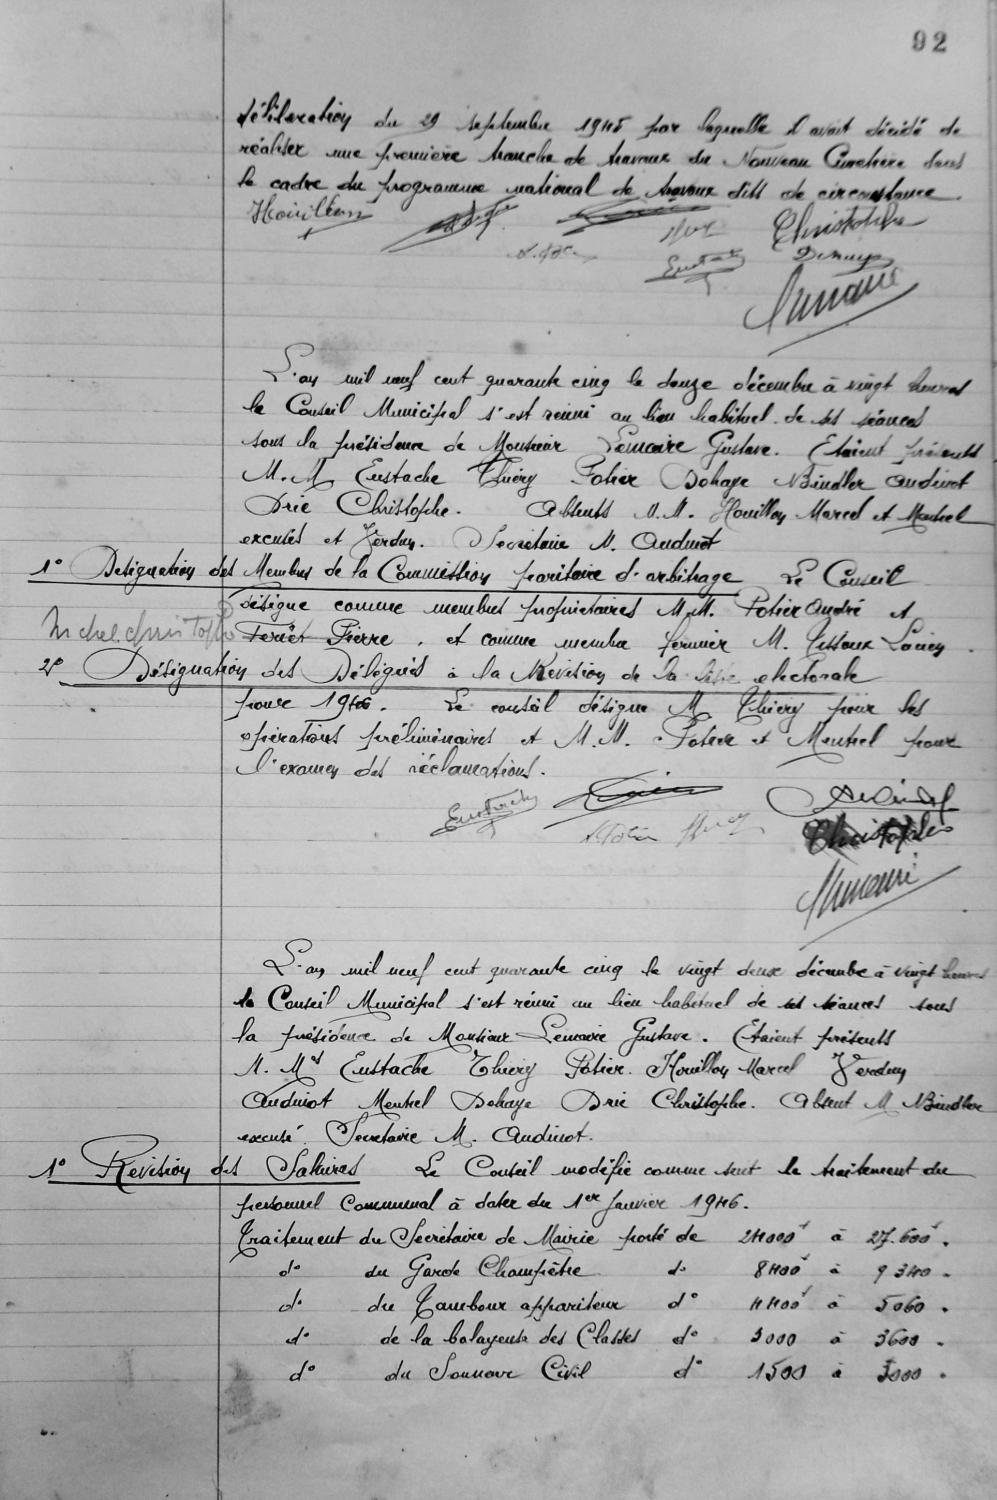 92
délibération du 29 septembre 1945 par laquelle il avait décidé de
réaliser une première tranche de travaux du Nouveau Cimetière dans
le cadre du programme national de travaux dits de circonstance
Houillon
Christophe
Eustache
Lemaire
L'an mil neuf cent quarante cinq le douze décembre à vingt heures
le Conseil Municipal s'est réuni au lieu habituel de ses séances
sous la présidence de Monsieur Lemaire Gustave. Etaient présents
M.M Eustache Thiéry Potier Dohaye Bindler Audinot
Drié Christophe. Absents M.M. Houillon Marcel et Mentrel
excusés et Verdun. Secrétaire M. Audinot
1° Désignation des Membres de la Commission paritaire d'arbitrage Le Conseil
désigne comme membres propriétaires M.M. Potier André et
Michel Christophe Feriet Pierre, et comme membre fermier M.
2° Désignation des Délégués à la Révision de la liste electorale
pour 1946. Le conseil désigne M Thiéry pour les
opérations préliminaires et M.M. Potier et Mentrel pour
l'examen des réclamations.
Eustache
Audinot
Christophe
Lemaire
L'an mil neuf cent quarante cinq le vingt deux décembre à vingt heures
le Conseil Municipal s'est réuni au lieu habituel de ses séances sous
la présidence de Monsieur Lemaire Gustave. Etaient présents
M. Mrs Eustache Thiéry Potier. Houillon Marcel Verdun
Audinot Mentrel Dohaye Drié Christophe. Absent M Bindler
excusé. Secretaire M. Audinot.
1° Révision des Salaires Le Conseil modifie comme suit le traitement du
personnel Communal à dater du 1er Janvier 1946.
Traitement du Secrétaire de Mairie porté de 24000f à 27.600f.
d° du Garde Champêtre d° 8400f à 9340.
d° du Tambour appariteur d° 4400f à 5060.
d° de la balayeuse des Classes d° 3000 à 3600.
d° du Sonneur Civil d° 1500 à 3000.